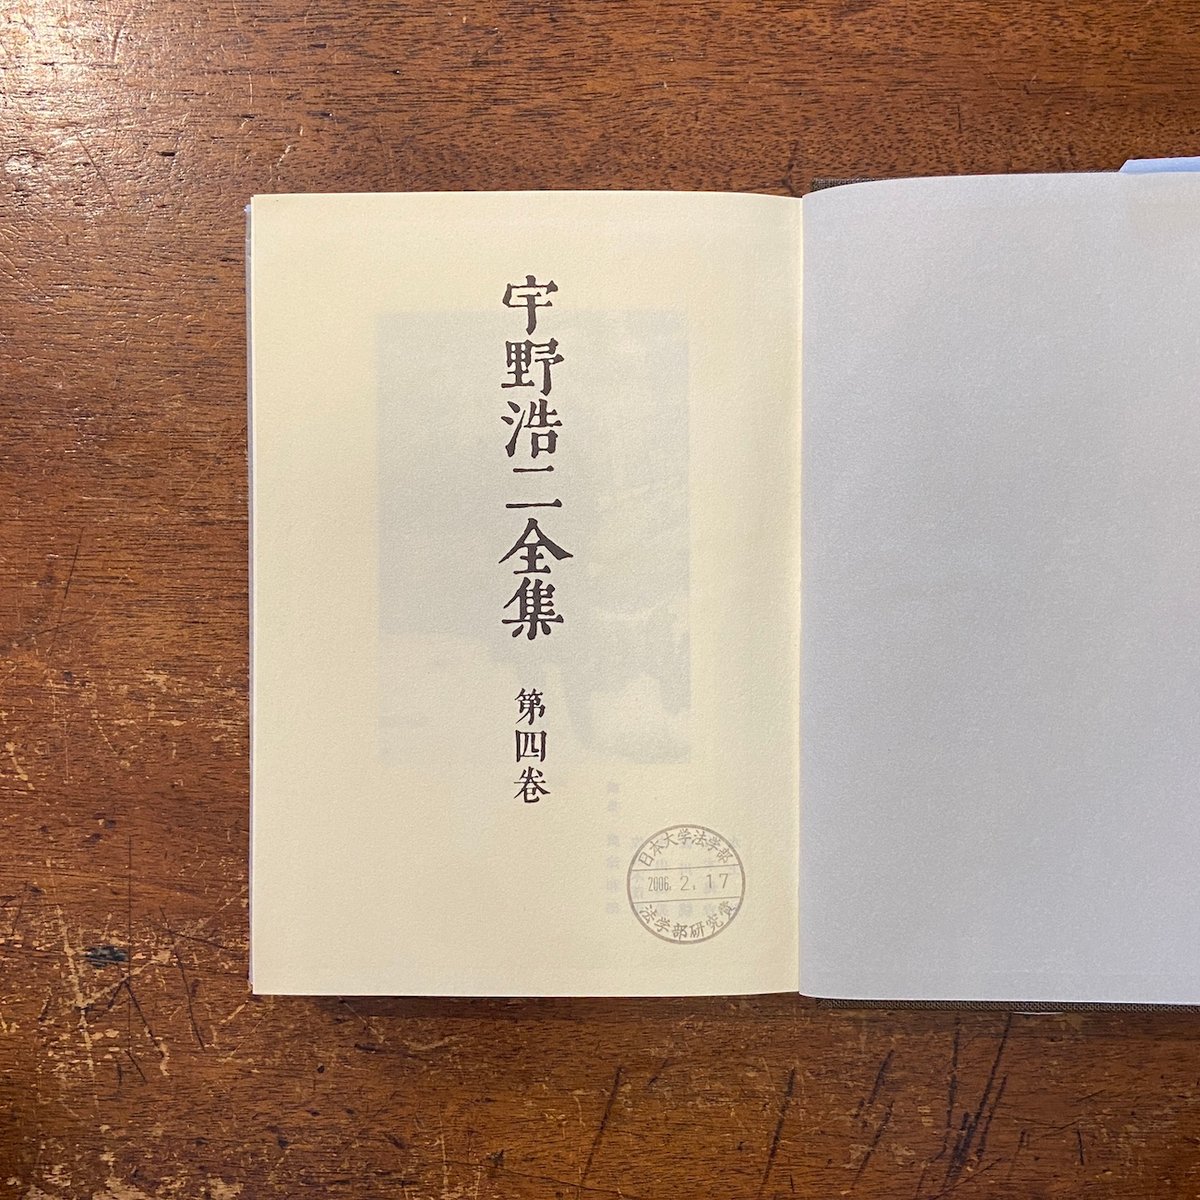 宇野浩二全集
第四巻
日本大学法学部
2006. 2. 17
法学部研究費